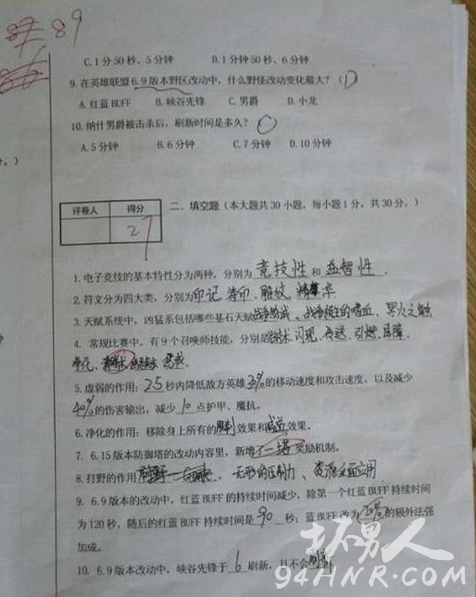 89
C. 1分50秒、5分钟 D. 1分钟50秒、6分钟
9. 在英雄联盟6.9版本野区改动中，什么野怪改动变化最大？（D）
A. 红蓝BUFF B. 峡谷先锋 C. 男爵 D. 小龙
10. 纳什男爵被击杀后，刷新时间是多久？（
A. 5分钟 B. 6分钟 C. 7分钟 D. 10分钟
评卷人 得分
27
二、填空题（本大题共30小题，每小题1分，共30分。）
1. 电子竞技的基本特性分为两种，分别为 竞技性 和 益智性 。
2. 符文分为四大类，分别为印记、符印、雕纹、精华
3. 天赋系统中，凶猛系包括哪些基石天赋 战争热诚、战争领主的嗜血、
4. 常规比赛中，有9个召唤师技能，分别是 闪现、传送、引燃、屏障、
净化、
5. 虚弱的作用：2.5秒内降低敌方英雄 的移动速度和攻击速度，以及减少
40%的伤害输出，减少10点护甲、魔抗。
6. 净化的作用：移除身上所有的 效果和 效果。
7. 6.15版本防御塔的改动内容里，新增 一塔 奖励机制。
8. 打野的作用 、无形的压制力、资源
9. 6.9版本的改动中，红蓝BUFF的持续时间减少，除第一个红蓝BUFF持续时间
为120秒，随后的红蓝BUFF持续时间是 90 秒；蓝BUFF改为 的额外法强
加成。
10. 6.9版本改动中，峡谷先锋于 6 刷新，且不会
坏男人
94HNR.COM